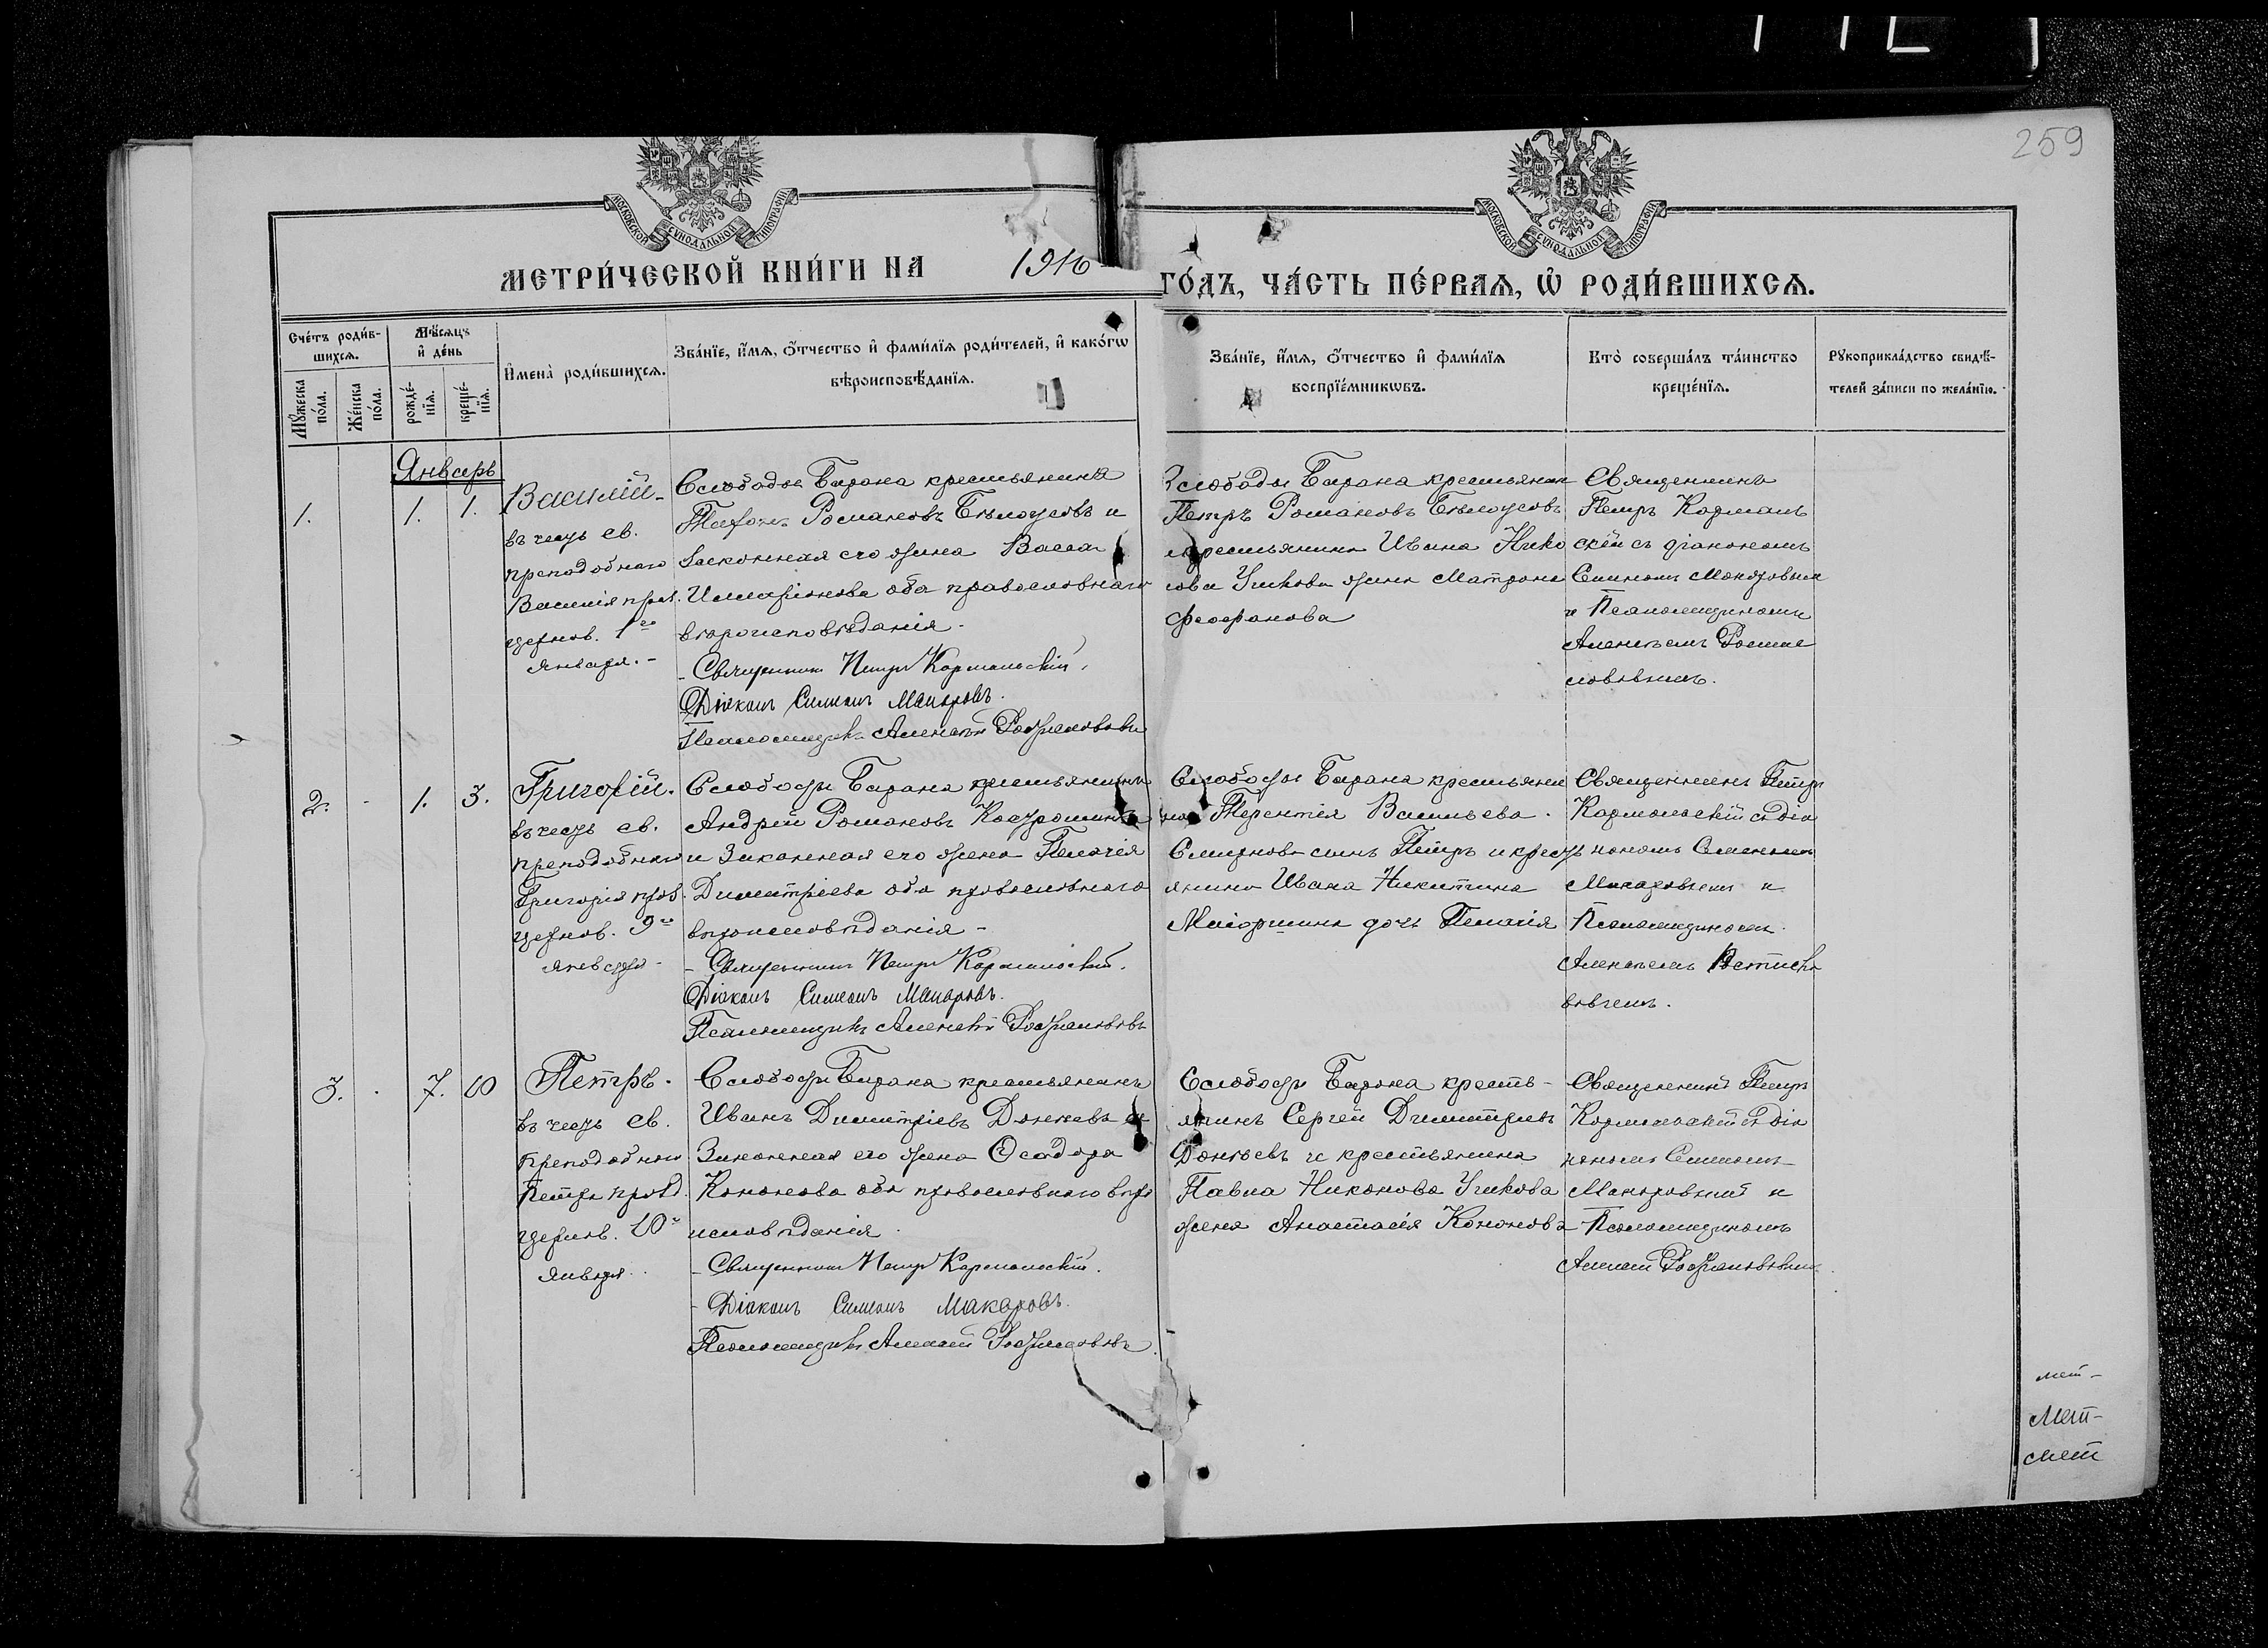 259
МОСКОВСКОЙ СѴНОДАЛЬНОЙ ТИПОГРАФІИ
МОСКОВСКОЙ СѴНОДАЛЬНОЙ ТИПОГРАФІИ
МЕТРИ́ЧЕСКОЙ КНИ́ГИ НА 1916 ГО́ДЪ, ЧА́СТЬ ПЕ́РВАѦ, Ѡ҆ РОДИ́ВШИХСѦ.
Сче́тъ роди́в-
шихсѧ.
Мꙋ́жеска
по́ла.
Же́нска
по́ла.
Мѣ́сѧцъ
и҆ де́нь
рожде́-
нїѧ.
креще́-
нїѧ.
И҆мена̀ роди́вшихсѧ.
Зва́нїе, и҆́мѧ, ѻ҆́тчество и҆ фами́лїѧ роди́телей, и҆ како́гѡ
вѣроисповѣ́данїѧ.
Зва́нїе, и҆́мѧ, ѻ҆́тчество и҆ фами́лїѧ
воспрїе́мникѡвъ.
Кто̀ соверша́лъ та́инство
креще́нїѧ.
Рꙋкоприкла́дство свидѣ́-
телей за́писи по жела́нїю.
Январь
1.
1.
1.
Василій
въ честь св.
преподобнаго
Василія праз.
церков. 1го
января.
Слободы Барана крестьянинъ
Романовъ Бѣлоусовъ и
законная его жена Васса
Иларіонова оба православнаго
вѣроисповѣданія.
Священникъ Петръ Кармальскій.
Діаконъ Симеонъ Макаровъ.
Псаломщикъ Алексѣй
Слободы Барана крестьянин
Петръ Романовъ Бѣлоусовъ
и крестьянина Ивана Нико
нова Ушкова жена Матрона
Феофанова
Священникъ
Петръ Кармаль
скій съ діакономъ
Симеономъ Макаровымъ
и Псаломщикомъ
Алексѣемъ
2.
1.
3.
Григорій.
въ честь св.
преподобнаго
Григорія праз.
церков. 9го
января
Слободы Барана крестьянинъ
Андрей Романовъ
и законная его жена Пелагія
Димитріева оба православнаго
вѣроисповѣданія
Священникъ Петръ Кармальскій.
Діаконъ Симеонъ Макаровъ.
Псаломщикъ Алексѣй
Слободы Барана крестьяни
на Терентія Васильева
Смирнова сынъ Петръ и кресть
янина Ивана Никитина
дочь Пелагія
Священникъ Петръ
Кармальскій съ діа
кономъ Симеономъ
Макаровымъ и
Псаломщикомъ
Алексѣемъ
3.
7.
10
Петръ.
въ честь св.
преподобнаго
Петра празд.
церков. 10го
января
Слободы Барана крестьянинъ
Иванъ Димитріевъ Доньевъ и
Законная его жена Ѳеодора
Кононова оба православнаго вѣро
исповѣданія
Священникъ Петръ Кармальскій.
Діаконъ Симеонъ Макаровъ.
Псаломщикъ Алексѣй
Слободы Барана кресть-
янинъ Сергей Димитріевъ
Доньевъ и крестьянина
Павла Никонова Ушкова
жена Анастасія Кононова
Священникъ Петръ
Кармальскій съ діа
кономъ Симеономъ
Макаровымъ и
Псаломщикомъ
Алексѣемъ